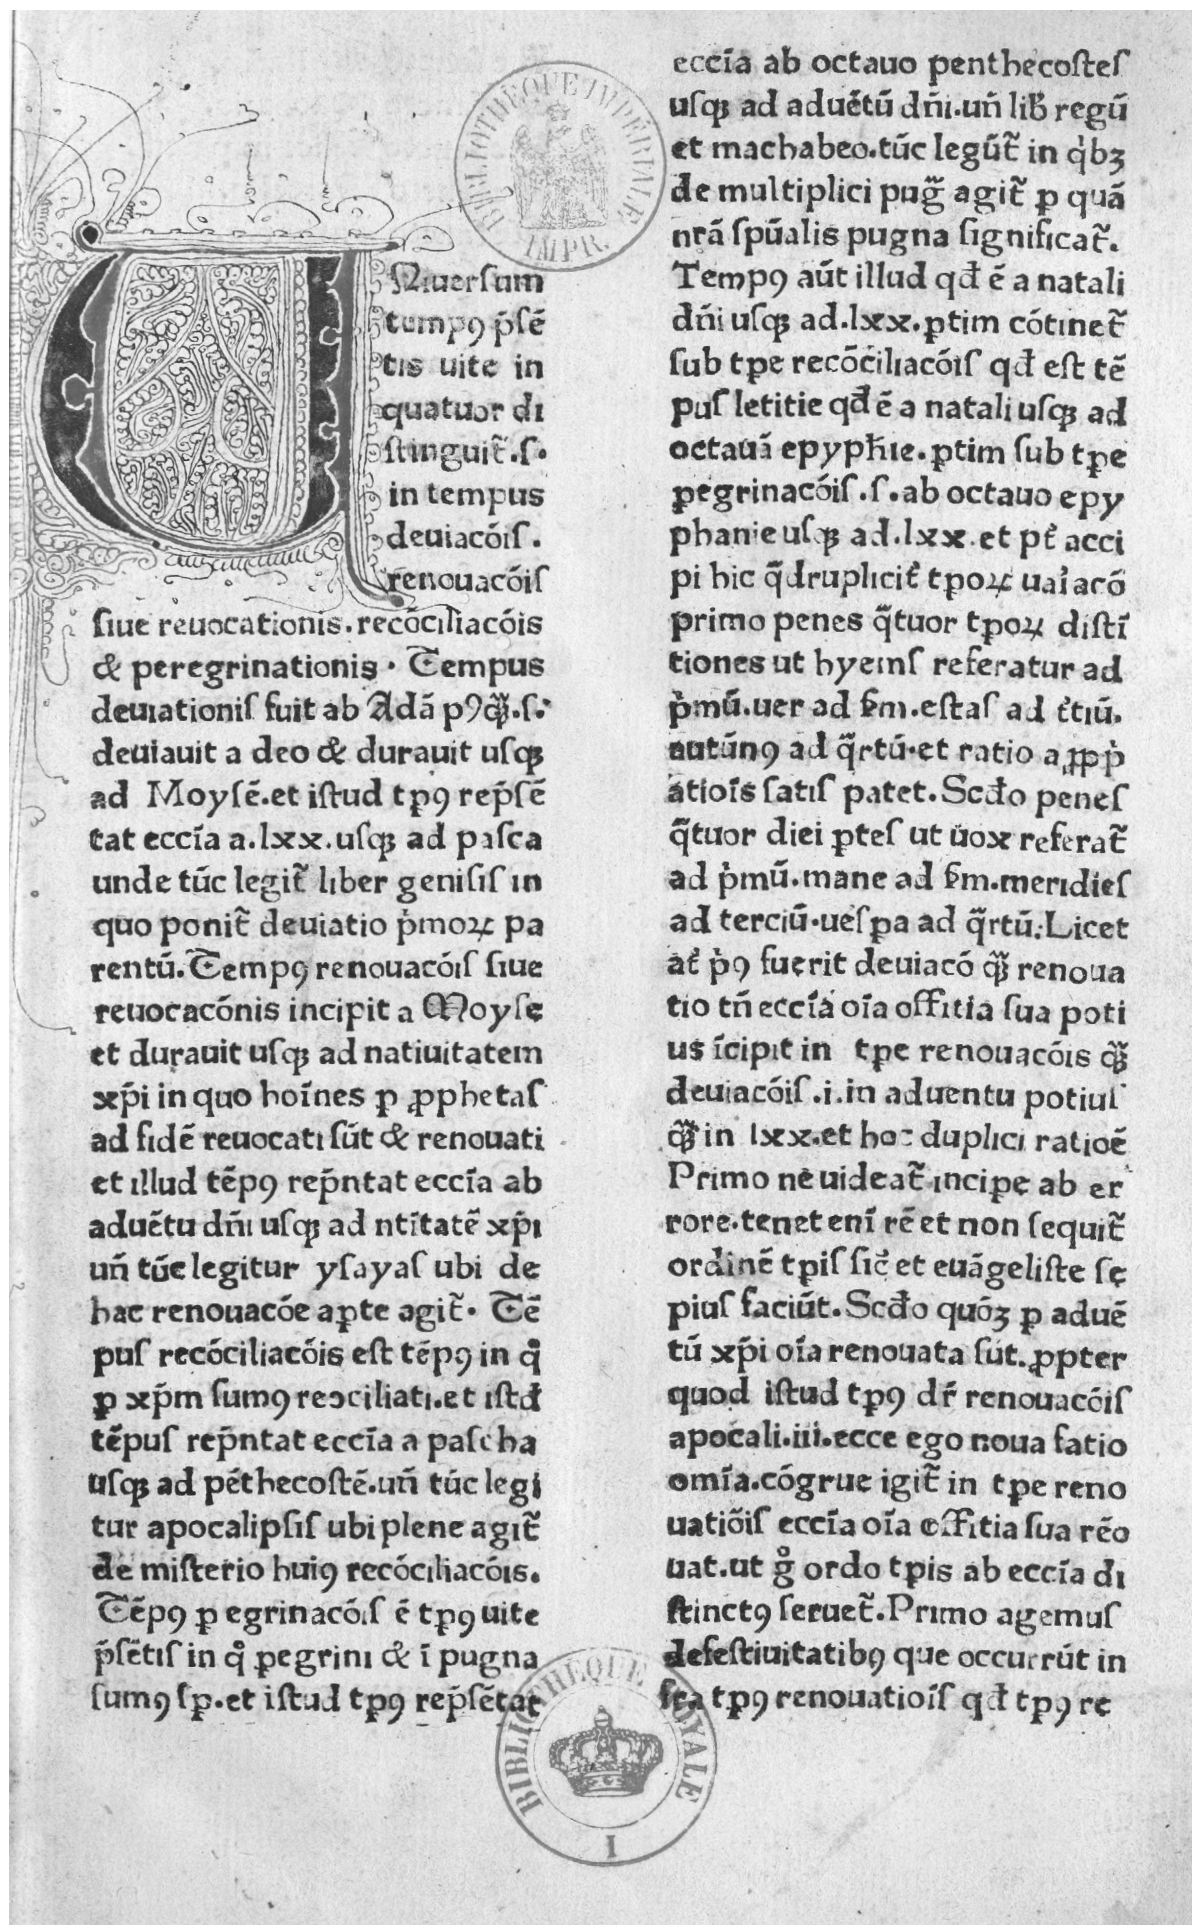 BIBLIOTHÈQUE IMPÉRIALE
IMPR.
UNiuersum
tempꝯ p̄sē
tis uite in
quatuor di
stinguit̃.s.
in tempus
deuiacōis.
renouacōis
siue reuocationis.recōciliacōis
& peregrinationis. Tempus
deuiationis fuit ab Adā pꝯq̃ꝫ.s.
deuiauit a deo & durauit usqꝫ
ad Moysē.et istud tp̱ꝯ rep̄sē
tat ecc̄ia a.lxx.usqꝫ ad pasca
unde tūc legit̃ liber genisis in
quo ponit̃ deuiatio p̍moꝝ pa
rentū.Tempꝯ renouacōis siue
reuocacōnis incipit a Moyse
et durauit usqꝫ ad natiuitatem
xp̄i in quo hoīnes ꝑ ꝓphetas
ad fidē reuocati sūt & renouati
et illud tēpꝯ rep̄ntat ecc̄ia ab
aduētu dn̄i usqꝫ ad ntītatē xp̄i
un̄ tūc legitur ysayas ubi de
hac renouacōe aꝑte agit̃. Tē
pus recōciliacōis est tēpꝯ in qͦ
ꝑ xp̄m sumꝯ reↄciliati.et istđ
tēpus rep̄ntat ecc̄ia a pascha
usqꝫ ad pēthecostē.un̄ tūc legi
tur apocalipsis ubi plene agit̃
de misterio huiꝯ recōciliacōis.
Tēpꝯ ꝑ egrinacōis ē tp̱ꝯ uite
p̄sētis in qͦ ꝑegrini & ī pugna
sumꝯ sꝑ.et istud tp̱ꝯ rep̄sētat
ecc̄ia ab octauo penthecostes
usqꝫ ad aduētū dn̄i.un̄ lib̄ regū
et machabeo.tūc legūt̃ in q̍bꝫ
de multiplici pug̃ agit̃ ꝑ quā
nrā spūalis pugna significat̃.
Tempꝯ aūt illud qđ ē a natali
dn̄i usqꝫ ad.lxx.ꝑtim cōtinet̃
sub tp̱e recōciliacōis qđ est tē
pus letitie qđ ē a natali usqꝫ ad
octauā epyph̄ie.ꝑtim sub tp̱e
ꝑegrinacōis.s.ab octauo epy
phanie usqꝫ ad.lxx.et pt̉ acci
pi hic q̃druplicit̉ tp̱oꝝ uai̍acō
primo penes q̃tuor tp̱oꝝ distī
tiones ut hyems referatur ad
p̍mū.uer ad ẜm.estas ad t̉tiū.
autūnꝯ ad q̃rtū.et ratio a ꝓpp̍
atiōis satis patet.Scđo penes
q̃tuor diei ꝑtes ut ūox referat̃
ad p̍mū.mane ad ẜm.meridies
ad terciū.uesꝑa ad q̃rtū.Licet
at̉ p̍ꝯ fuerit deuiacō q̃ꝫ renoua
tio tn̄ ecc̄ia oīa offitia sua poti
us īcipit in tp̱e renouacōis q̃ꝫ
deuiacōis.i.in aduentu potius
q̃ꝫ in lxx.et hoc duplici ratioē
Primo ne uideat̃ incipe ab er
rore.tenet enī rē et non sequit̃
ordinē tp̱is sic̄ et euāgeliste sę
pius faciūt.Scđo quōꝫ ꝑ aduē
tū xp̄i oīa renouata sūt.ꝓpter
quod istud tp̱ꝯ dr̄ renouacōis
apocali.iii.ecce ego noua fatio
omīa.cōgrue igit̃ in tp̱e reno
uatiōis ecc̄ia oīa offitia sua rēo
uat.ut gͦ ordo tp̱is ab ecc̄ia di
stinctꝯ seruet̃.Primo agemus
defestiuitatibꝯ que occurrūt in
fra tp̱ꝯ renouatiōis qđ tp̱ꝯ re
BIBLIOTHÈQUE ROYALE
I